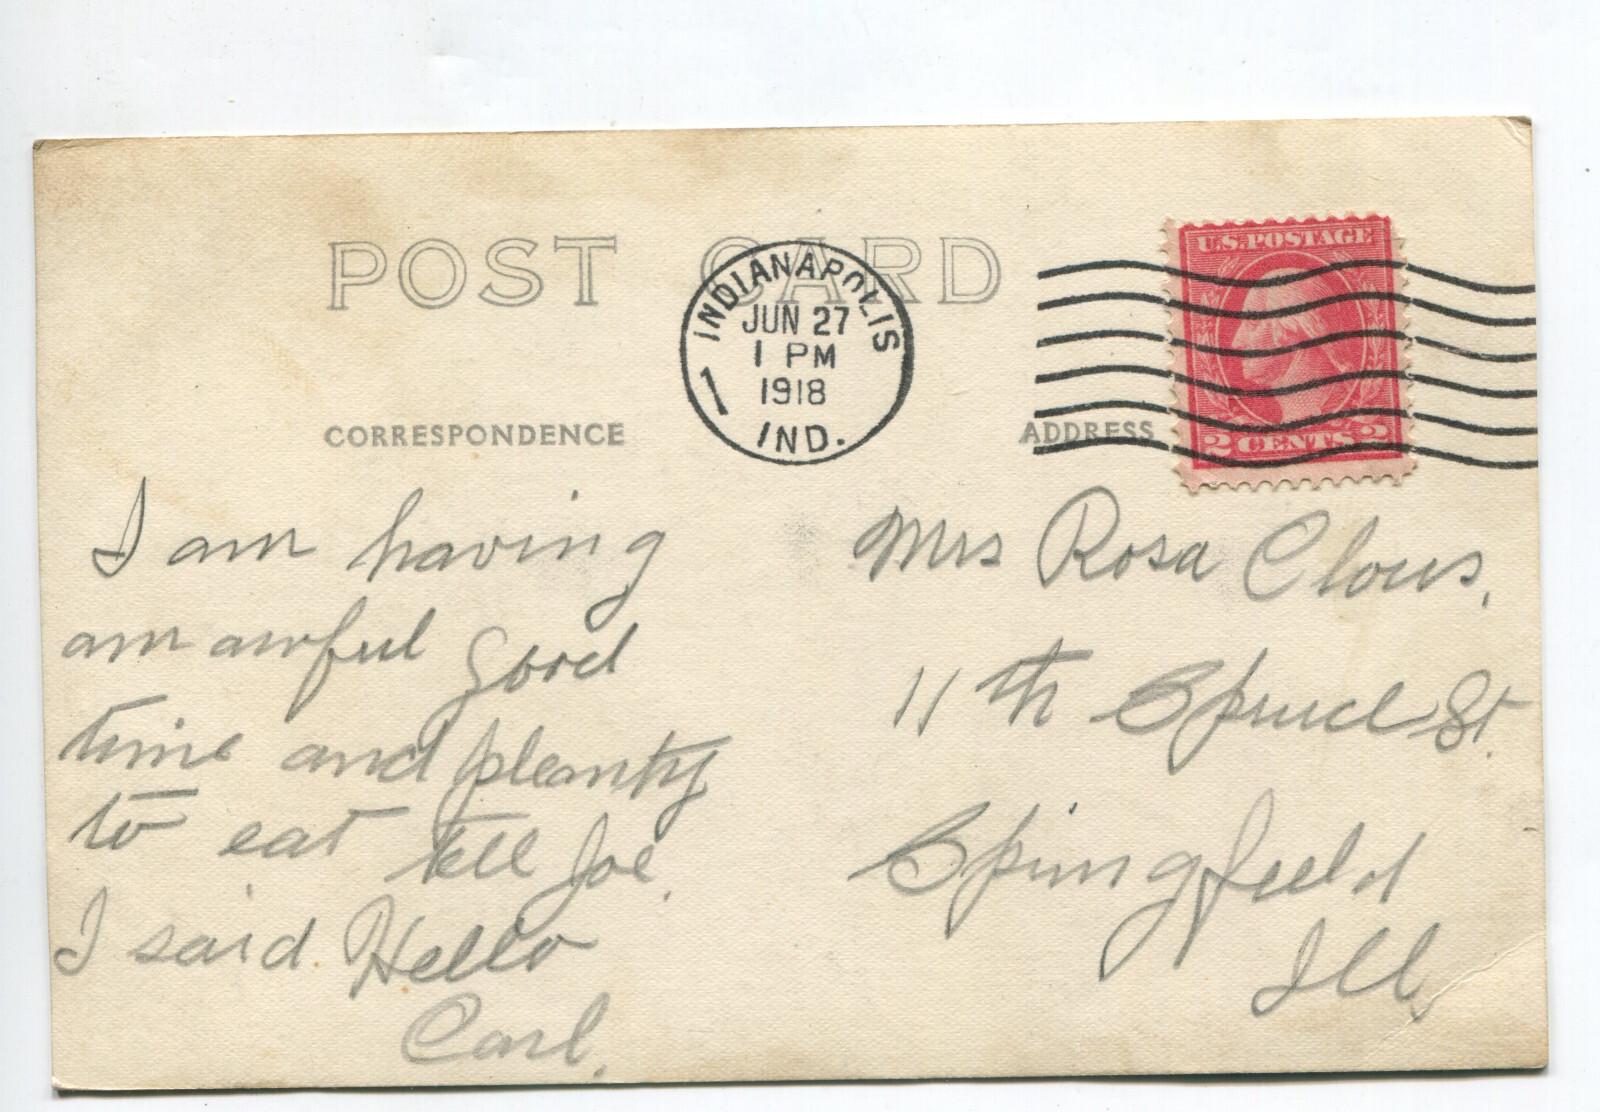 POST CARD
INDIANAPOLIS
JUN 27
1 PM
1918
1
IND.
U.S. POSTAGE
2 CENTS 2
CORRESPONDENCE
ADDRESS
I am having
am awful good
time and pleanty
to eat tell Joe.
I said Hello
Carl.
Mrs Rosa Clous,
11 th Spruce St.
Springfield
Ill,